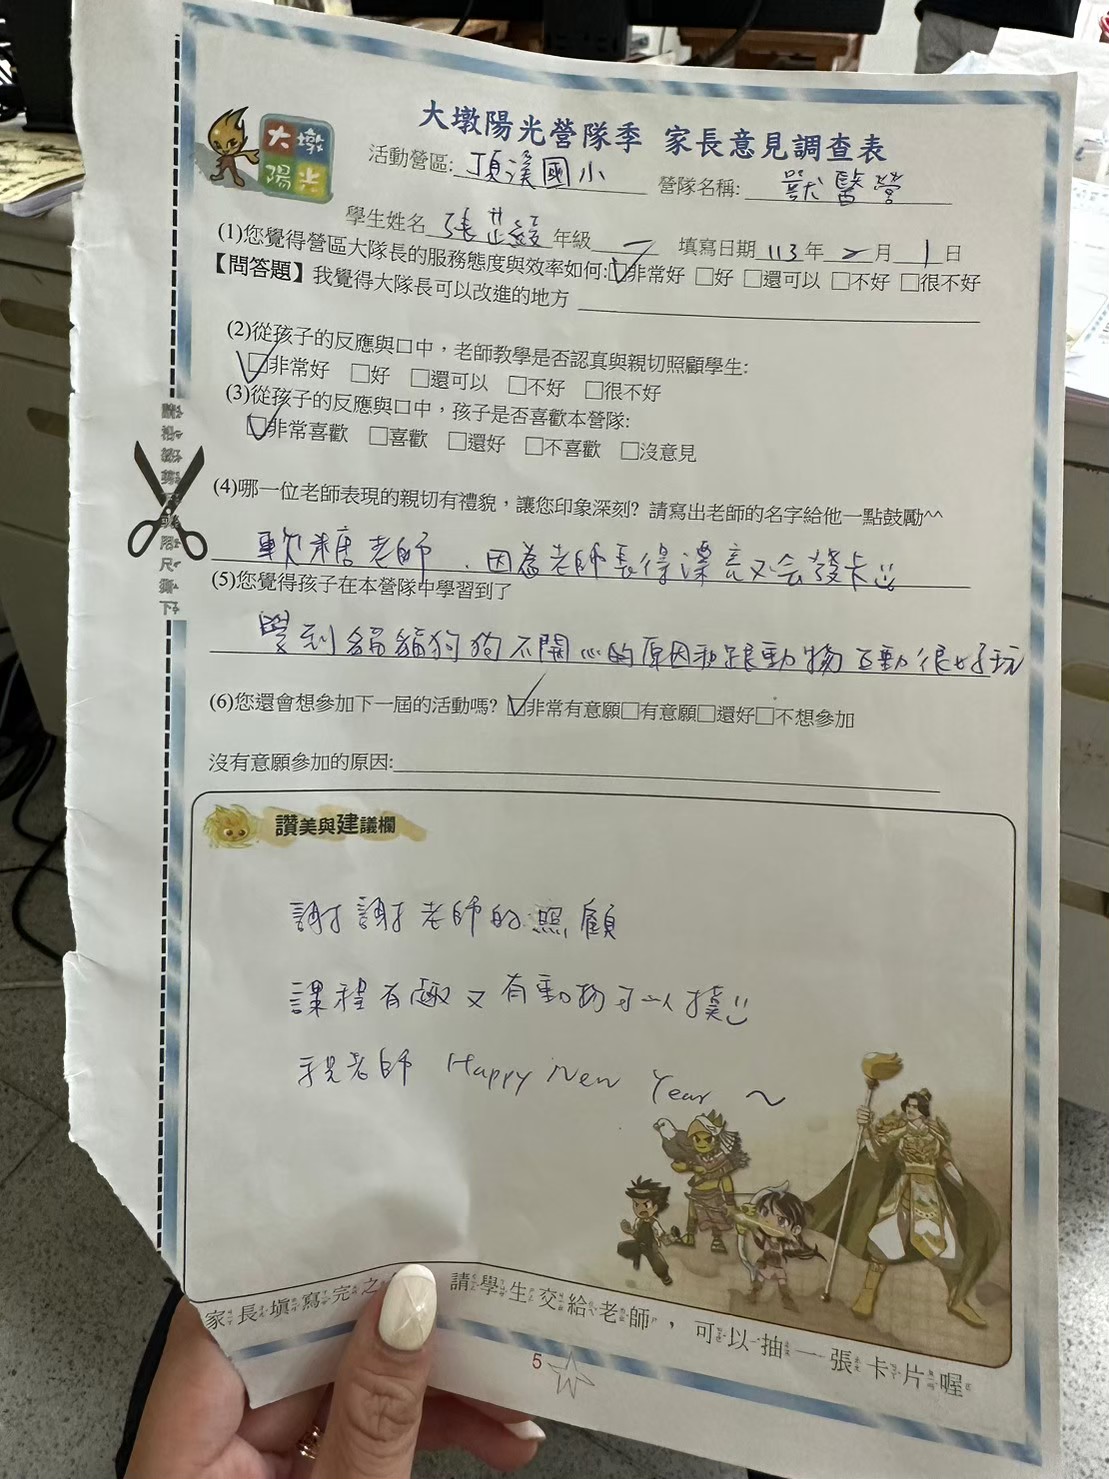 大墩陽光
大墩陽光營隊季 家長意見調查表
活動營區:頂溪國小 營隊名稱:獸醫營
學生姓名 張芷綾 年級 二 填寫日期 113年2月1日
(1)您覺得營區大隊長的服務態度與效率如何:☑非常好 □好 □還可以 □不好 □很不好
【問答題】我覺得大隊長可以改進的地方
(2)從孩子的反應與口中，老師教學是否認真與親切照顧學生:
☑非常好 □好 □還可以 □不好 □很不好
(3)從孩子的反應與口中，孩子是否喜歡本營隊:
☑非常喜歡 □喜歡 □還好 □不喜歡 □沒意見
(4)哪一位老師表現的親切有禮貌，讓您印象深刻? 請寫出老師的名字給他一點鼓勵^^
軟糖老師、因為老師長得漂亮又会發卡
(5)您覺得孩子在本營隊中學習到了
學到貓貓狗狗不開心的原因和跟動物互動很好玩
(6)您還會想參加下一屆的活動嗎? ☑非常有意願□有意願□還好□不想參加
沒有意願參加的原因:
讚美與建議欄
謝謝老師的照顧
課程有趣又有動物可以摸
祝老師 Happy New Year ~
家長填寫完之 請學生交給老師，可以抽一張卡片喔
5